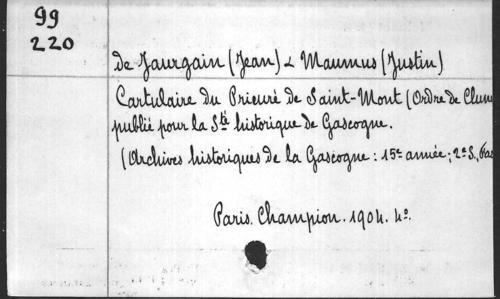 99
220
de Jaurgain (Jean) & Maumus (Justin)
Cartulaire du Prieuré de Saint-Mont (Ordre de Clun
publié pour la Sté historique de Gascogne.
(Archives historiques de la Gascogne : 15e année ; 2e S.,
Paris. Champion. 1904. 4o.